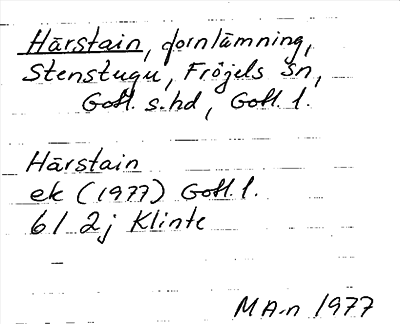 Härstain, fornlämning,
Stenstugu, Fröjels sn,
Gotl. s.hd, Gotl. l.
Härstain
ek (1977) Gotl. l.
6 I 2j Klinte
MA-n 1977